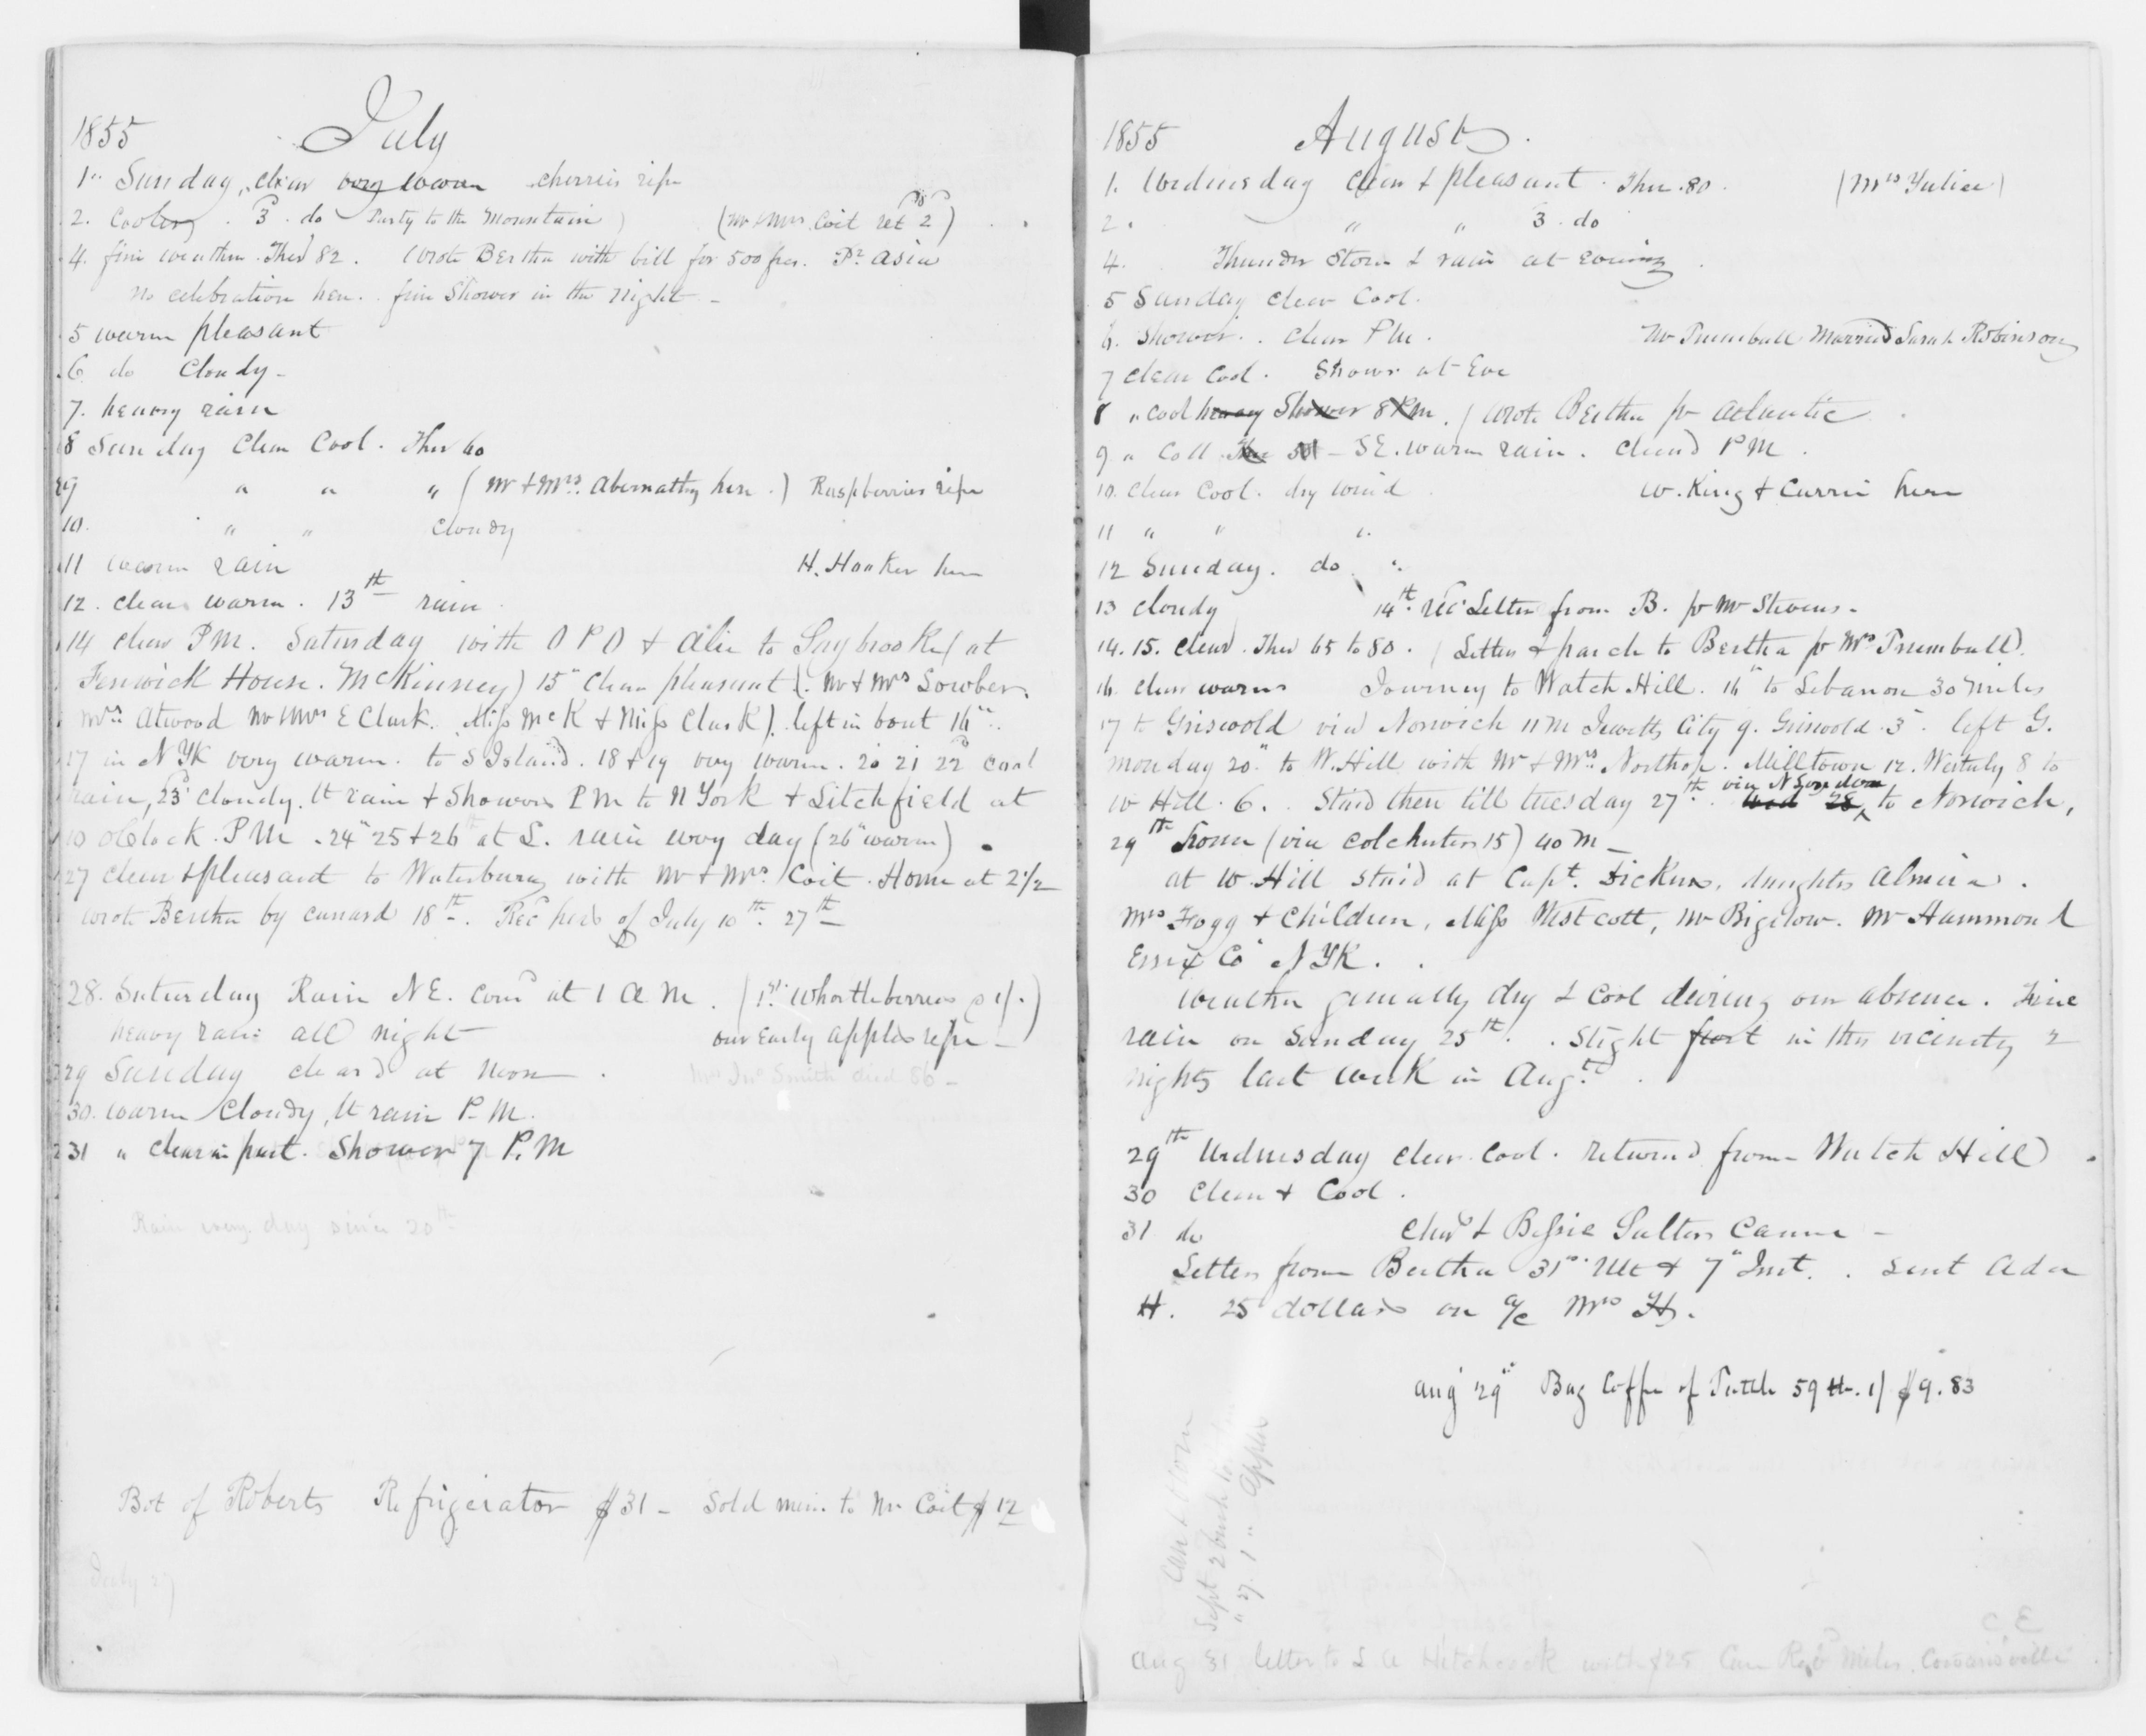 1855 July
1" Sunday, clear very warm cherries ripe
2. Cooler. 3d. do Party to the Mountain (Mr & Mrs Coit ret 2d)
4. fine weather Ther 82. Wrote Bertha with bill for 500 frcs. Pr Asia
No celebration here. fine Shower in the night -
5 warm pleasant
6 do Cloudy -
7. heavy rain
8 Sunday Clear Cool. Ther 60
9 " " " (Mr & Mrs. Abernathy here.) Raspberries ripe
10. " " cloudy
11 warm rain H. Hooker here
12. clear warm. 13th rain
14 clear P.M. Saturday with O P O & Alice to Saybrook (at
Fenwick House. McKinney) 15" Clear pleasant (Mr & Mrs Sowber.
Mrs. Atwood Mr & Mrs E Clark. Miss McK & Miss Clark). left in boat 16"
17 in N Yk very warm. to S Island. 18 & 19 very warm. 20 21 22d cool
rain, 23d cloudy. lt rain & Showers P M to N York & Litchfield at
10 oClock P M. 24" 25 & 26th at L. rain every day (26" warm).
27 clear & pleasant to Waterbury with Mr & Mrs. Coit. Home at 2 1/2
wrote Bertha by Cunard 18th. Rec hers of July 10th. 27th
28. Saturday Rain N E. comd at 1 A M. (1st Whortleberries
heavy rain all night our Early apples ripe -
29 Sunday cleard at Noon. Mrs Jno Smith died 86 -
30. warm Cloudy, lt rain P. M.
31 " clear in part. Shower 7 P. M
Rain every day since 20th
Bot of Roberts Refrigerator $31 - Sold mine to Mr Coit $12
July 27
1855 August.
1. Wednesday Clear & pleasant. Ther. 80. (Mrs Yulice)
2. " " 3. do
4. Thunder Storm & rain at evening.
5 Sunday clear Cool.
6. Shower.. Clear P M. Mr Trumbull Married Sarah Robinson
7 clear Cool. Shower at Eve
8 " cool heavy Shower 8 P M. / Wrote Bertha pr Atlantic.
9 " Coll Ther - S E. warm rain. cleard P M.
10. Clear Cool. dry wind W. King & Currie here
11 " " "
12 Sunday. do "
13 cloudy 14th. rec Letter from B. pr Mr Stevens -
14. 15. Clear. Ther 65 to 80. (Letter & parcle to Bertha pr Mrs Trumbull)
16. clear warm Journey to Watch Hill. 16" to Lebanon 30 miles
17 to Griswold via Norwich 11 M Jewetts City 9. Griswold 3. left G.
Monday 20" to W. Hill with Mr & Mrs Northop. Milltown 12. Westerly 8 to
W Hill. 6. Staid there till Tuesday 27th. Wed 28 via N London to Norwich,
29th home (via Colchester 15) 40 M -
at W. Hill staid at Capt. Dickens, daughter Almira.
Mrs Fogg & Children, Miss Westcott, Mr Bigelow. Mr Hammond
Essex Co N Yk.
Weather generally dry & Cool during our absence. Fine
rain on Sunday 25th. Slight frost in this vicinity 2
nights last week in Augt.
29th Wednesday clear Cool. returned from Watch Hill.
30 Clear & Cool.
31 do Chas & Bessie Salter Came -
Letters from Bertha 31st Ult & 7" Inst. Sent Ada
H. 25 dollars on a/c Mrs H.
Aug 29" Bag Coffee of Tuttle 59 lb. $9.83
Sept 2 bush
" 27. 1 " Apples
C E
Aug 31 letter to L A Hitchcock with $25 Care Revd Miles